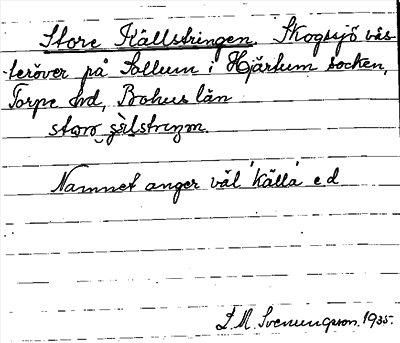 Store Källstringen. Skogssjö väs-
teröver på Sollum i Hjärtum socken,
Torpe hd, Bohus län
Namnet anger väl 'källa' e d
S. M. Svenungsson. 1935.